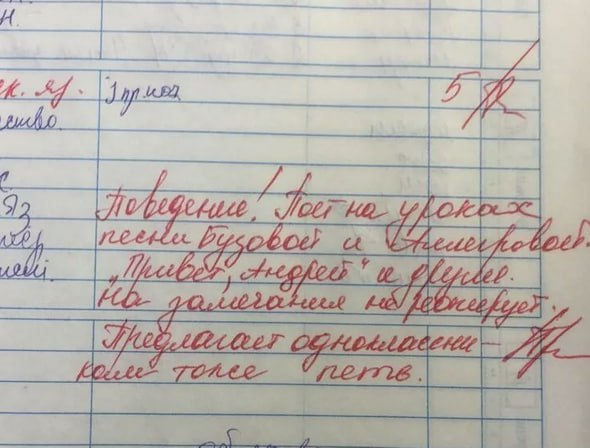 н.
ск. яз. Упр.
5
ство.
Яз
Поведение! Поёт на уроках
песни Бузовой и Аллегровой.
"Привет, Андрей" и другие.
На замечания не реагирует.
Предлагает одноклассни-
кам тоже петь.